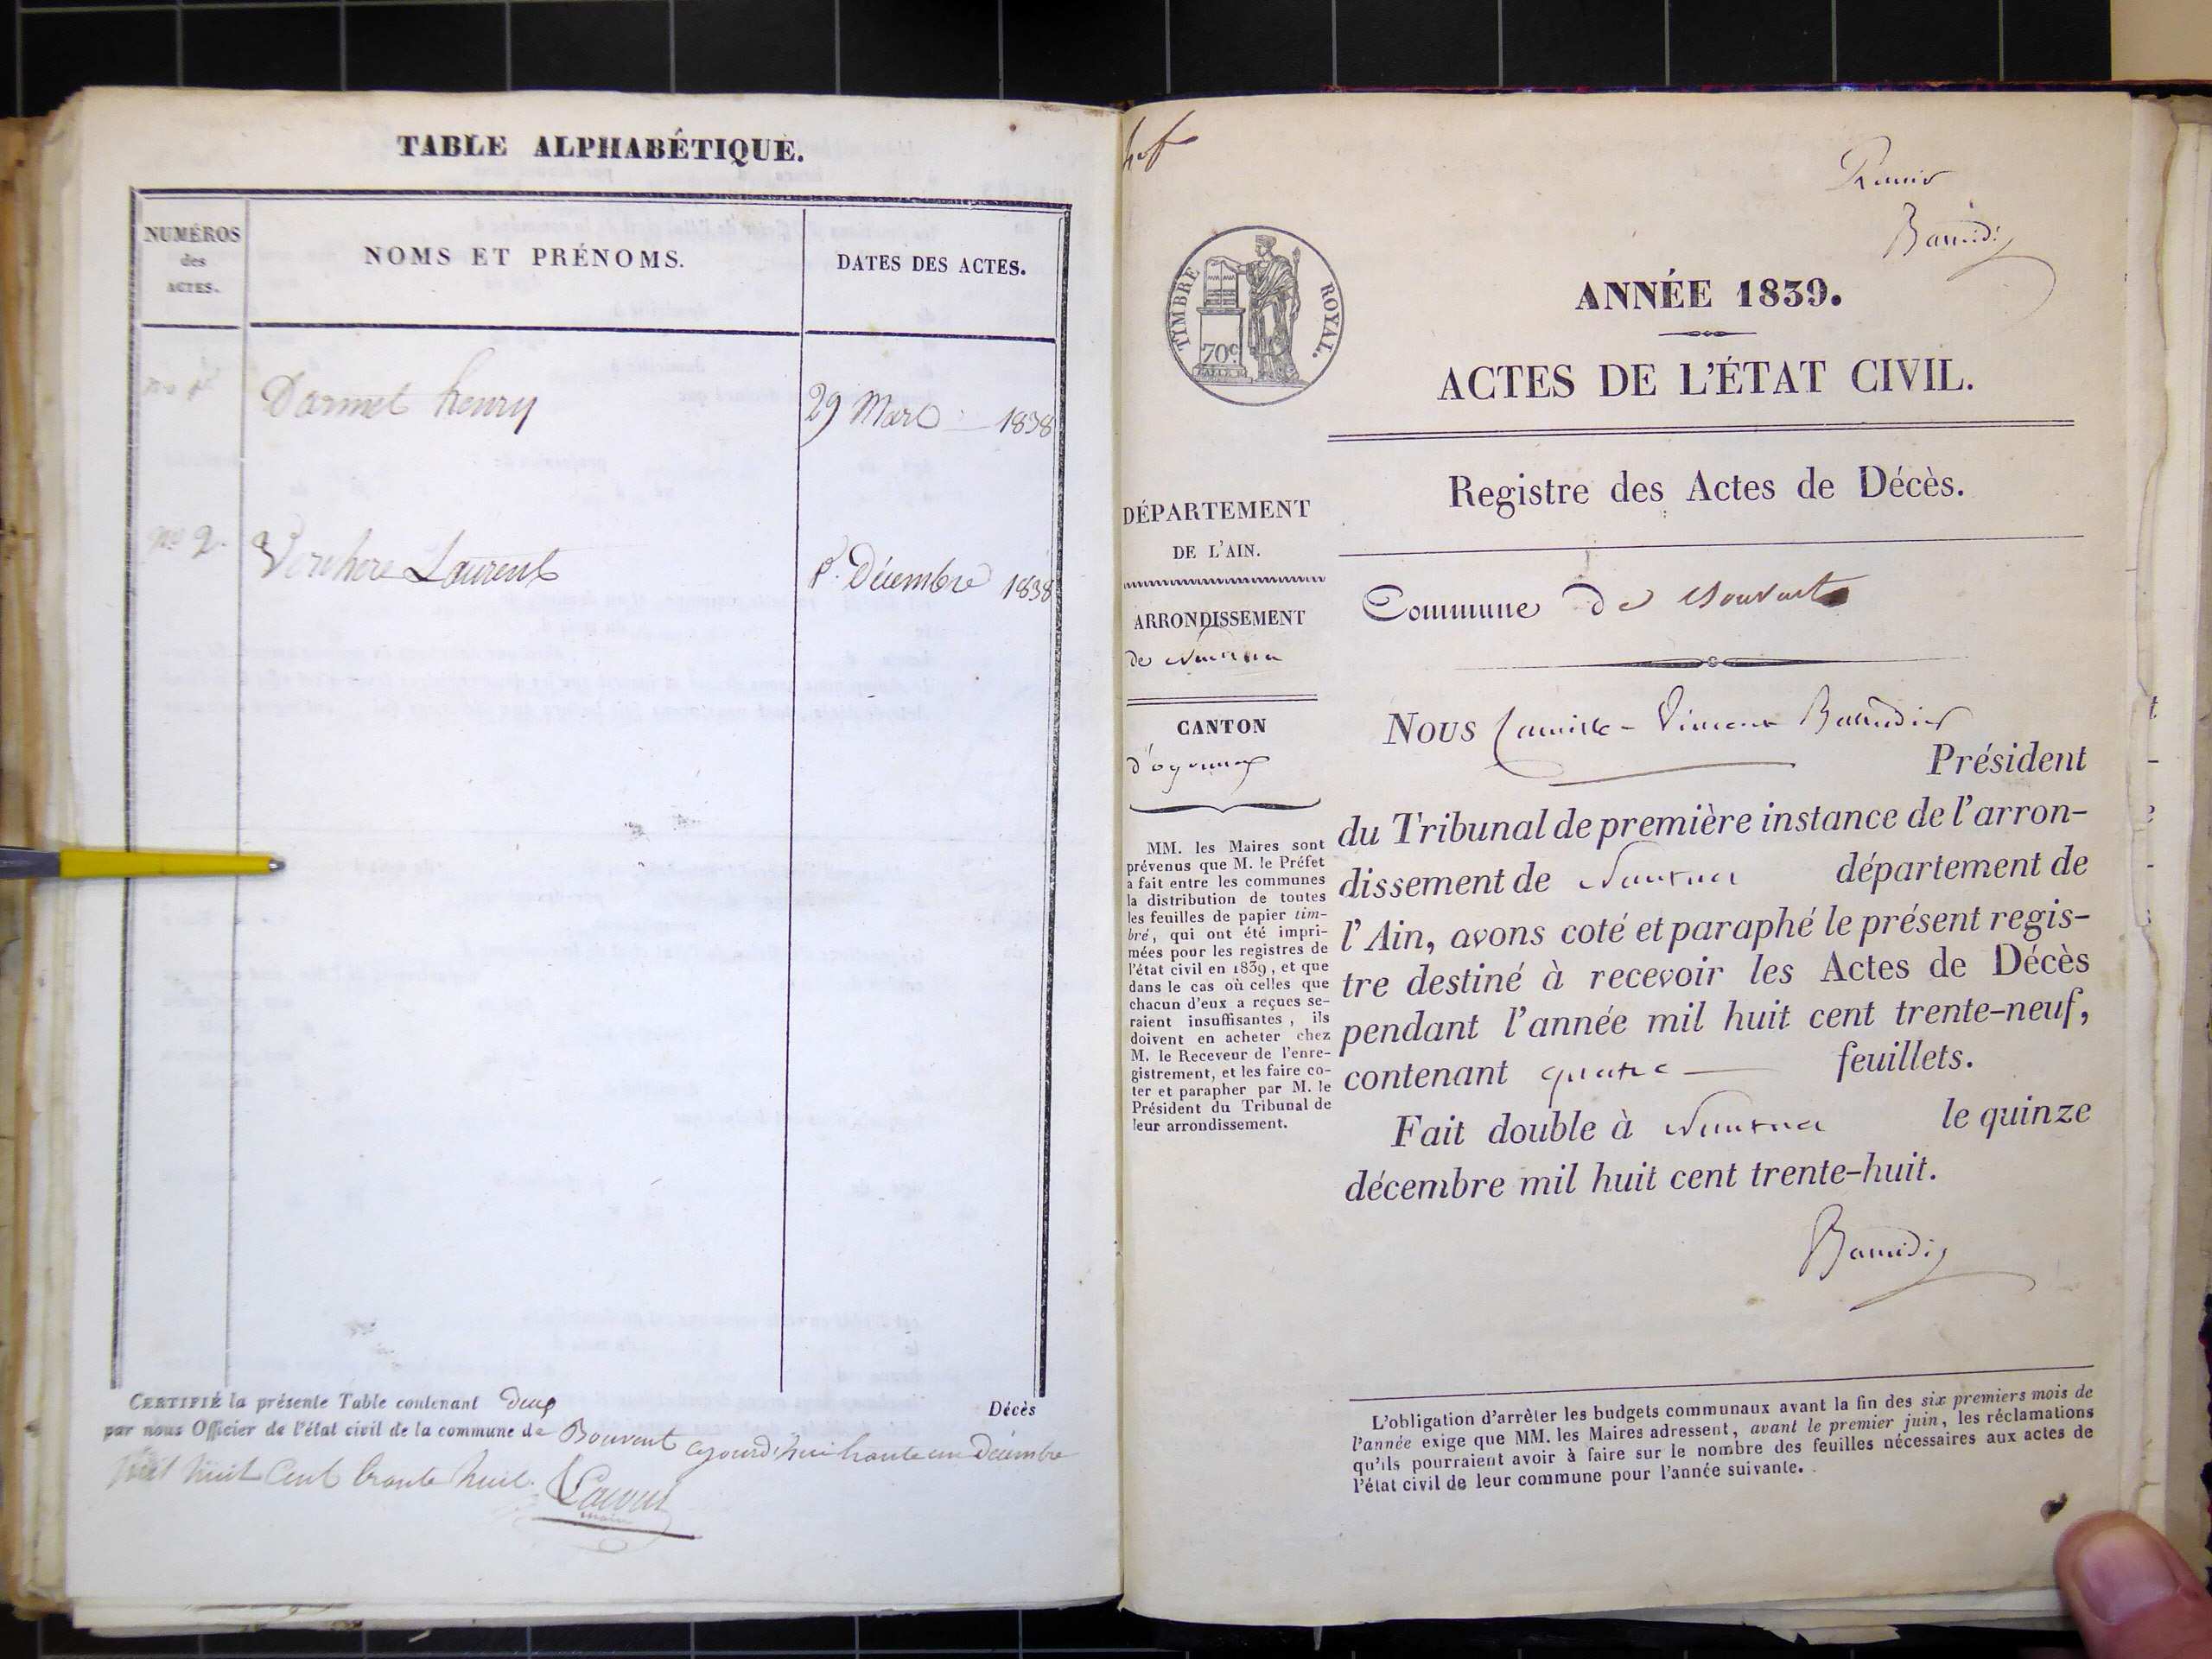 TABLE ALPHABÉTIQUE.
NUMÉROS
des
ACTES.
NOMS ET PRÉNOMS.
DATES DES ACTES.
Darmet henry
29 Mars 1838
no 2.
Verchere Laurent
Décembre 1838
CERTIFIÉ la présente Table contenant deux Décès
par nous Officier de l'état civil de la commune de Bouvent ajourd'hui trante un Décembre
mil huit Cent trante huit.
maire
Premier
TIMBRE ROYAL.
70c
ANNÉE 1839.
ACTES DE L'ÉTAT CIVIL.
Registre des Actes de Décès.
DÉPARTEMENT
DE L'AIN.
ARRONDISSEMENT
de Nantua
CANTON
d'oyonnax
MM. les Maires sont
prévenus que M. le Préfet
a fait entre les communes
la distribution de toutes
les feuilles de papier tim-
bré, qui ont été impri-
mées pour les registres de
l'état civil en 1839, et que
dans le cas où celles que
chacun d'eux a reçues se-
raient insuffisantes, ils
doivent en acheter chez
M. le Receveur de l'enre-
gistrement, et les faire co-
ter et parapher par M. le
Président du Tribunal de
leur arrondissement.
Commune de Bouvent
NOUS Camille-Vincent Baudier
Président
du Tribunal de première instance de l'arron-
dissement de Nantua département de
l'Ain, avons coté et paraphé le présent regis-
tre destiné à recevoir les Actes de Décès
pendant l'année mil huit cent trente-neuf,
contenant quatre feuillets.
Fait double à Nantua le quinze
décembre mil huit cent trente-huit.
L'obligation d'arrêter les budgets communaux avant la fin des six premiers mois de
l'année exige que MM. les Maires adressent, avant le premier juin, les réclamations
qu'ils pourraient avoir à faire sur le nombre des feuilles nécessaires aux actes de
l'état civil de leur commune pour l'année suivante.